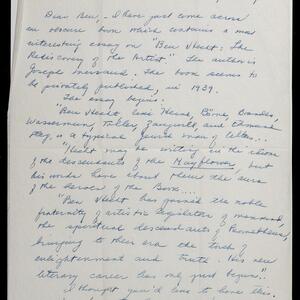 Dear Ben, - I have just come across
an obscure book which contains a most
interesting essay on "Ben Hecht: The
Rediscovery of the Artist." The author is
Joseph Mersand. The book seems to
be privately published, in 1939.
The essay begins:
"Ben Hecht, like Heine, Börne, Brandes,
Wassermann, Toller, and
is a typical Jewish man of letters..
"Hecht may be writing in the idiom
of the descendants of the Mayflower, but
his words have about them the aura
of the heroes of the Book....
"Ben Hecht has joined the noble
fraternity of artistic legislators of mankind,
the spiritual descendants of Prometheus,
bringing to their era the torch of
enlightenment and truth. His new
literary career has only just begun."
I thought you'd like to have this.